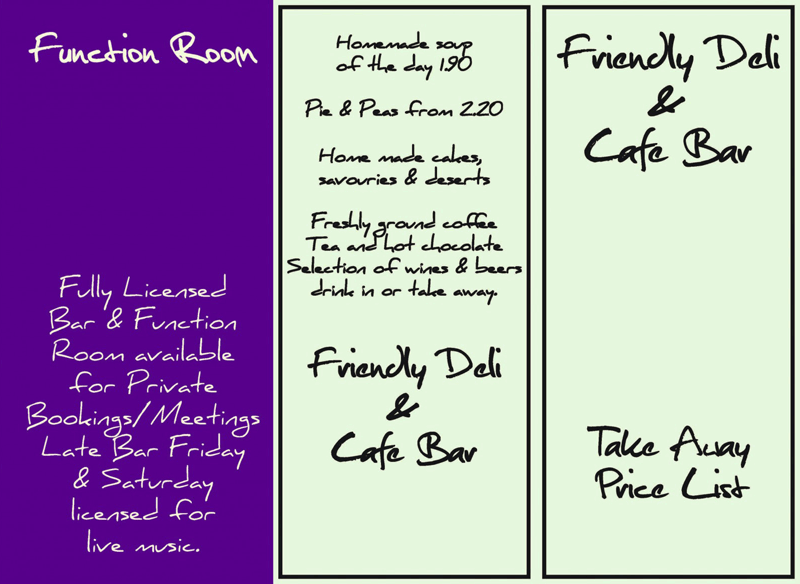 Function Room
Fully Licensed
Bar & Function
Room available
for Private
Bookings/Meetings
Late Bar Friday
& Saturday
licensed for
live music.
Homemade soup
of the day 1.90
Pie & Peas from 2.20
Home made cakes,
savouries & deserts
Freshly ground coffee
Tea and hot chocolate
Selection of wines & beers
drink in or take away.
Friendly Deli
&
Cafe Bar
Friendly Deli
&
Cafe Bar
Take Away
Price List